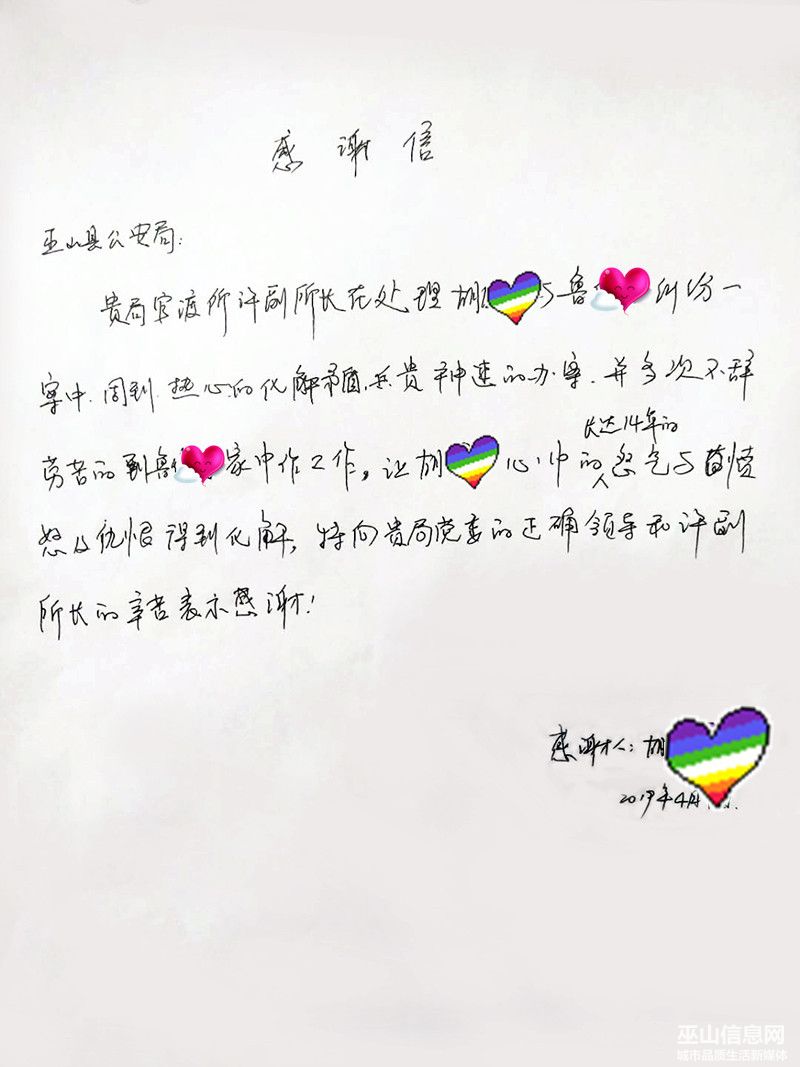 感谢信
巫山县公安局:
贵局官渡所许副所长在处理胡与鲁纠纷一
案中.周到.热心的化解矛盾,兵贵神速的办案.并多次不辞
长达14年的
劳苦的到鲁家中作工作。让胡心中的人怨气与愤
怒及仇恨得到化解,特向贵局党委的正确领导和许副
所长的辛苦表示感谢!
感谢人:胡
2019年4月
巫山信息网
城市品质生活新媒体